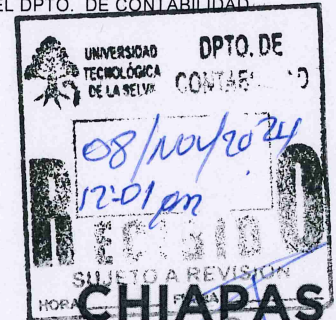 EL DPTO. DE CONTABILIDAD
UNIVERSIDAD
TECNOLÓGICA
DE LA SELVA
DPTO. DE
CONTABILIDAD
08/Nov/2024
12:01 pm
RECIBIDO
SUJETO A REVISIÓN
HORA
CHIAPAS